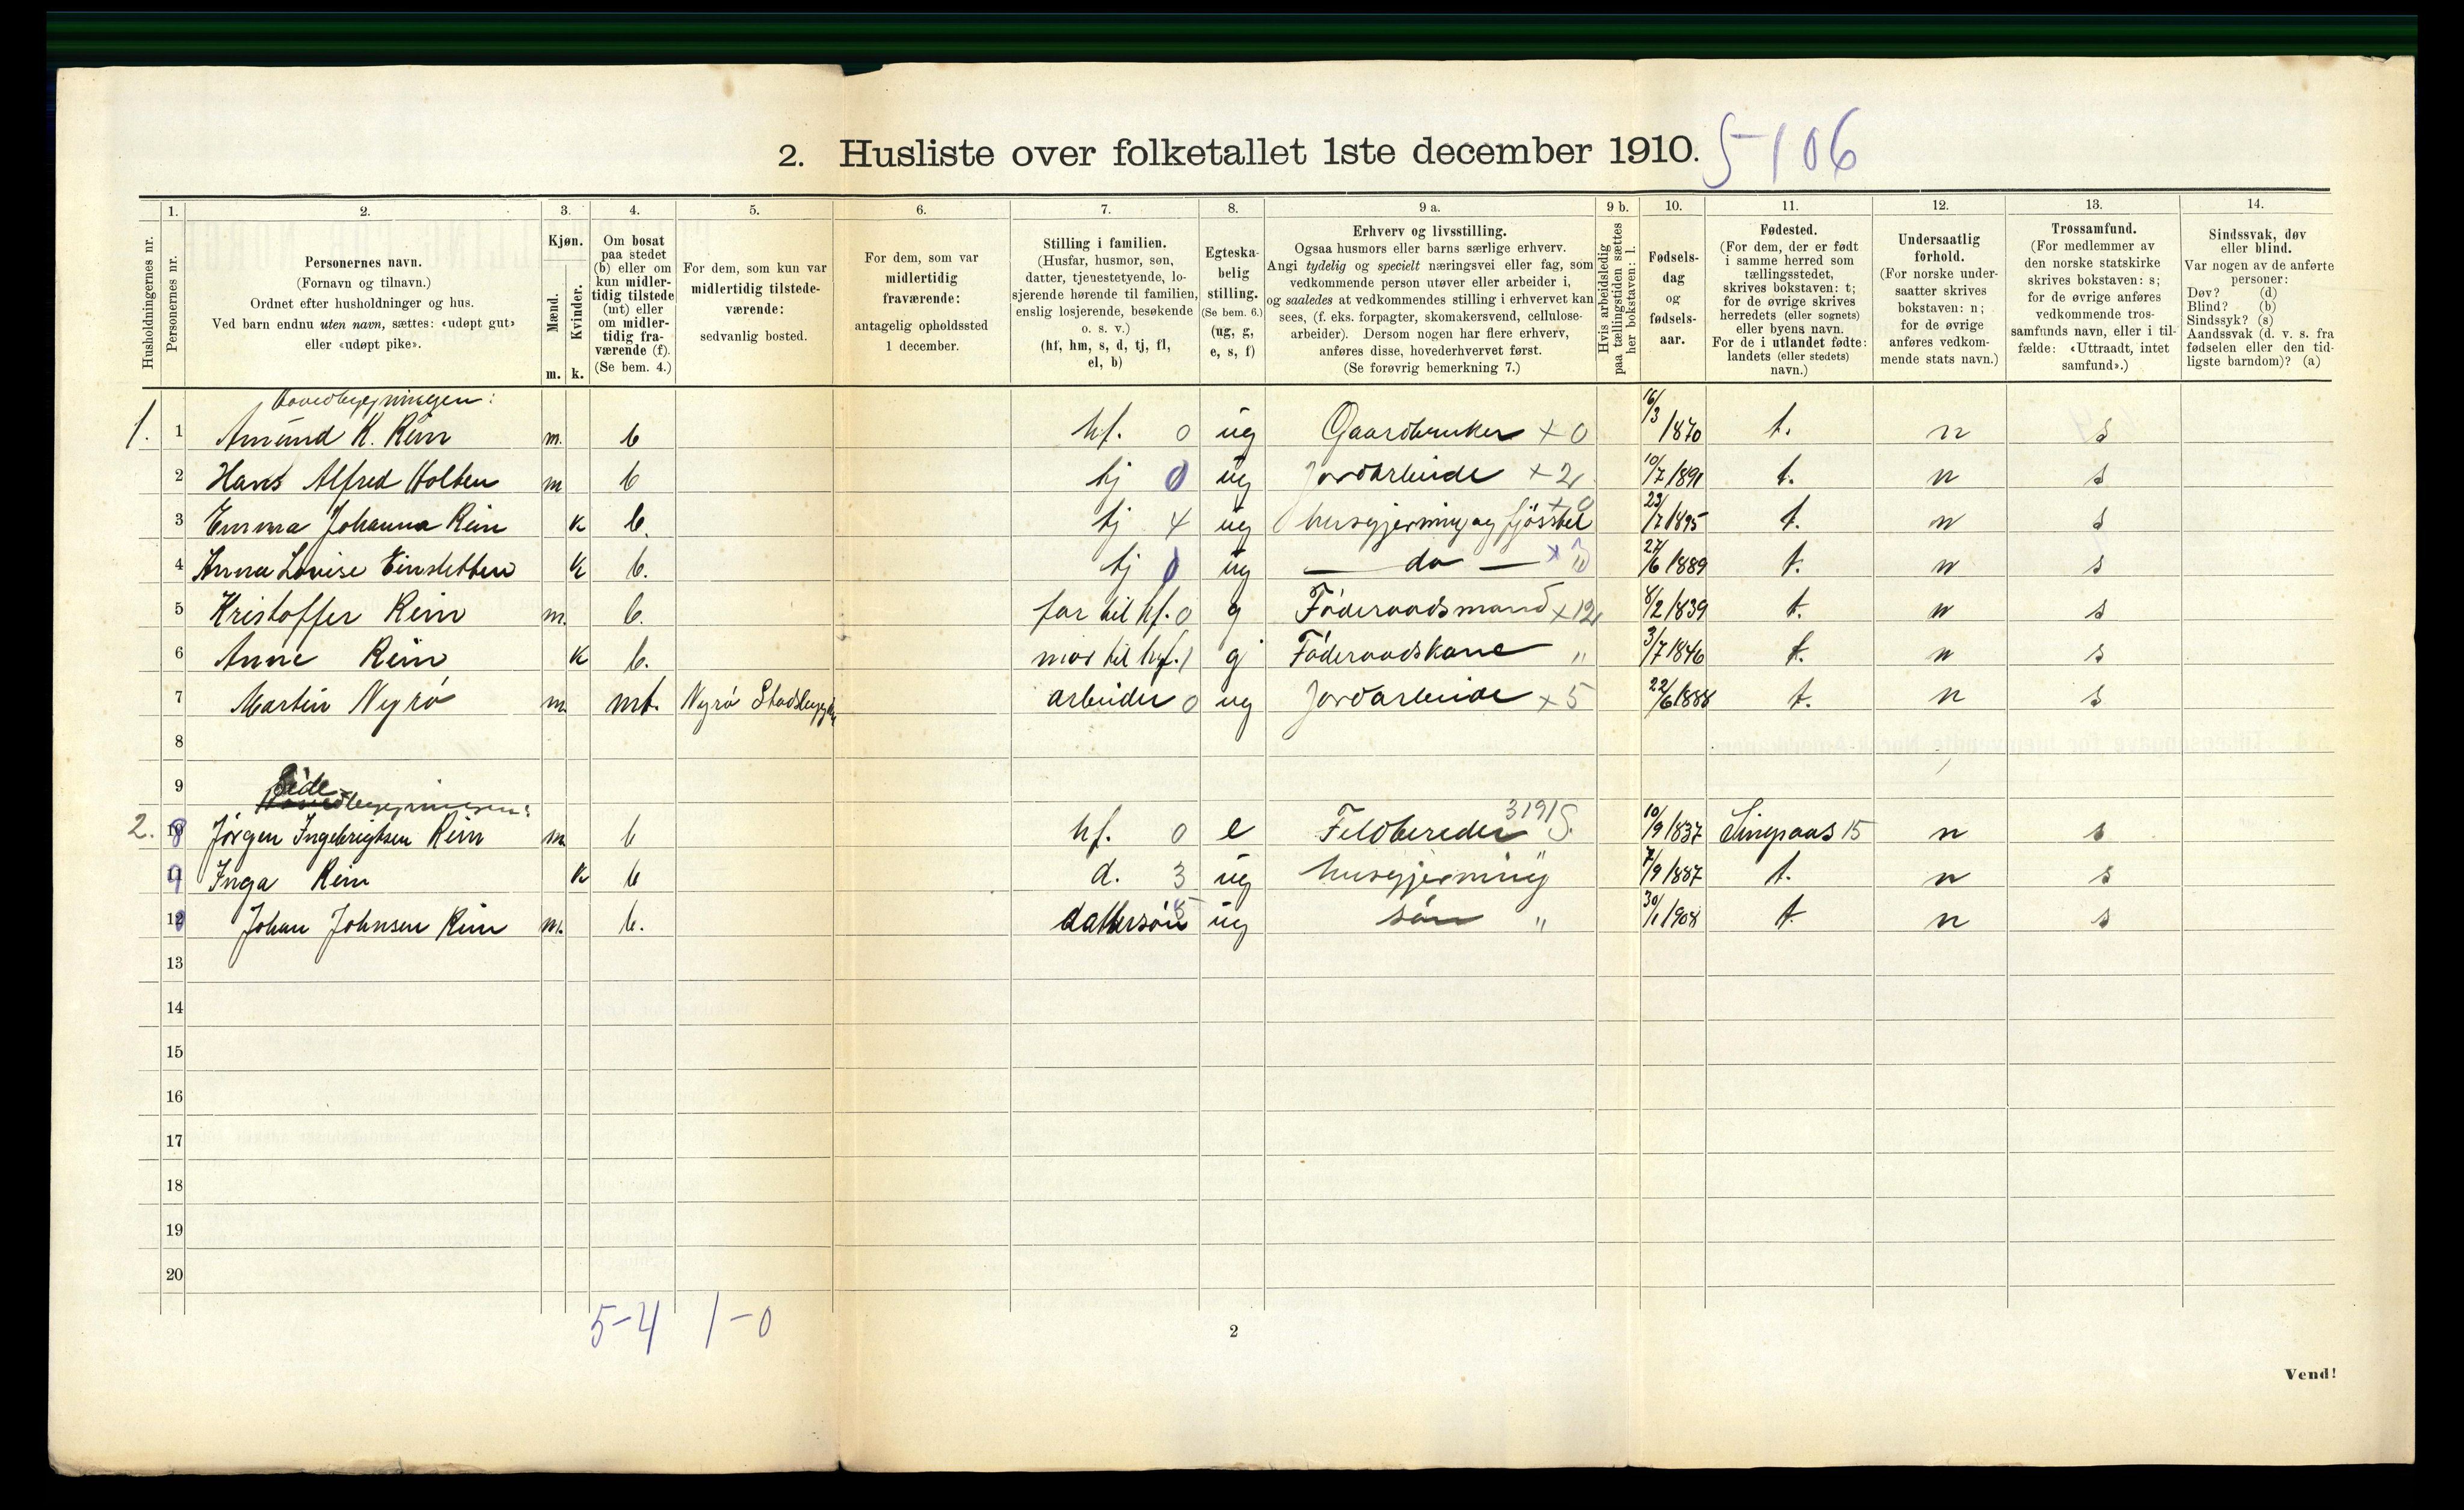 2. Husliste over folketallet 1ste december 1910. 5-106
Husholdningernes nr.
1.
Personernes nr.
2.
Personernes navn.
(Fornavn og tilnavn.)
Ordnet efter husholdninger og hus.
Ved barn endnu uten navn, sættes: «udøpt gut»
eller «udøpt pike».
3.
Kjøn.
Mænd.
Kvinder.
m. k.
4.
Om bosat
paa stedet
(b) eller om
kun midler-
tidig tilstede
(mt) eller
om midler-
tidig fra-
værende (f).
(Se bem. 4.)
5.
For dem, som kun var
midlertidig tilstede-
værende:
sedvanlig bosted.
6.
For dem, som var
midlertidig
fraværende:
antagelig opholdssted
1 december.
7.
Stilling i familien.
(Husfar, husmor, søn,
datter, tjenestetyende, lo-
sjerende hørende til familien,
enslig losjerende, besøkende
o. s. v.)
(hf, hm, s, d, tj, fl,
el, b)
8.
Egteska-
belig
stilling.
(Se bem. 6.)
(ug, g,
e, s, f)
9 a.
Erhverv og livsstilling.
Ogsaa husmors eller barns særlige erhverv.
Angi tydelig og specielt næringsvei eller fag, som
vedkommende person utøver eller arbeider i,
og saaledes at vedkommendes stilling i erhvervet kan
sees, (f. eks. forpagter, skomakersvend, cellulose-
arbeider). Dersom nogen har flere erhverv,
anføres disse, hovederhvervet først.
(Se forøvrig bemerkning 7.)
9 b.
Hvis arbeidsledig
paa tællingstiden sættes
her bokstaven: l.
10.
Fødsels-
dag
og
fødsels-
aar.
11.
Fødested.
(For dem, der er født
i samme herred som
tællingsstedet,
skrives bokstaven: t;
for de øvrige skrives
herredets (eller sognets)
eller byens navn.
For de i utlandet fødte:
landets (eller stedets)
navn.)
12.
Undersaatlig
forhold.
(For norske under-
saatter skrives
bokstaven: n;
for de øvrige
anføres vedkom-
mende stats navn.)
13.
Trossamfund.
(For medlemmer av
den norske statskirke
skrives bokstaven: s;
for de øvrige anføres
vedkommende tros-
samfunds navn, eller i til-
fælde: «Uttraadt, intet
samfund».)
14.
Sindssvak, døv
eller blind.
Var nogen av de anførte
personer:
Døv? (d)
Blind? (b)
Sindssyk? (s)
Aandssvak (d. v. s. fra
fødselen eller den tid-
ligste barndom)? (a)
Hovedbygningen:
1. 1 Amund K. Rein m. b hf. 0 ug Gaardbruker x 0 16/3 1870 t. n s
2 Hans Alfred Holten m b tj 0 ug Jordarbeide x 2 10/7 1891 t. n s
3 Emma Johanna Rein k b. tj 4 ug husgjerning og fjösstel x 0 23/7 1895 t. n s
4 Anna Lovise Einsletten k b. tj 0 ug — do — x 27/6 1889 t. n s
5 Kristoffer Rein m. b. far til hf. 0 g Föderaadsmand x 12 8/2 1839 t. n s
6 Anne Rein k b. mor til hf. 1 g Föderaadskone " 3/7 1846 t. n s
7 Martin Nyrö m. mt. Nyrö Stadsbygden arbeider 0 ug Jordarbeide x 5 22/6 1888 t. n s
8
9 Side
Hovedbygningen:
2. 10 8 Jörgen Ingebrigtsen Rein m. b hf. 0 e Feldbereder 3191 S. 10/9 1837 Singsaas 15 n s
11 9 Inga Rein k b d. 3 ug husgjerning " 7/9 1887 t. n s
12 Johan Johnsen Rein m. b. dattersön 5 ug sön " 30/1 1908 t n s
13
14
15
16
17
18
19
20
5-4 1-0
2
Vend!